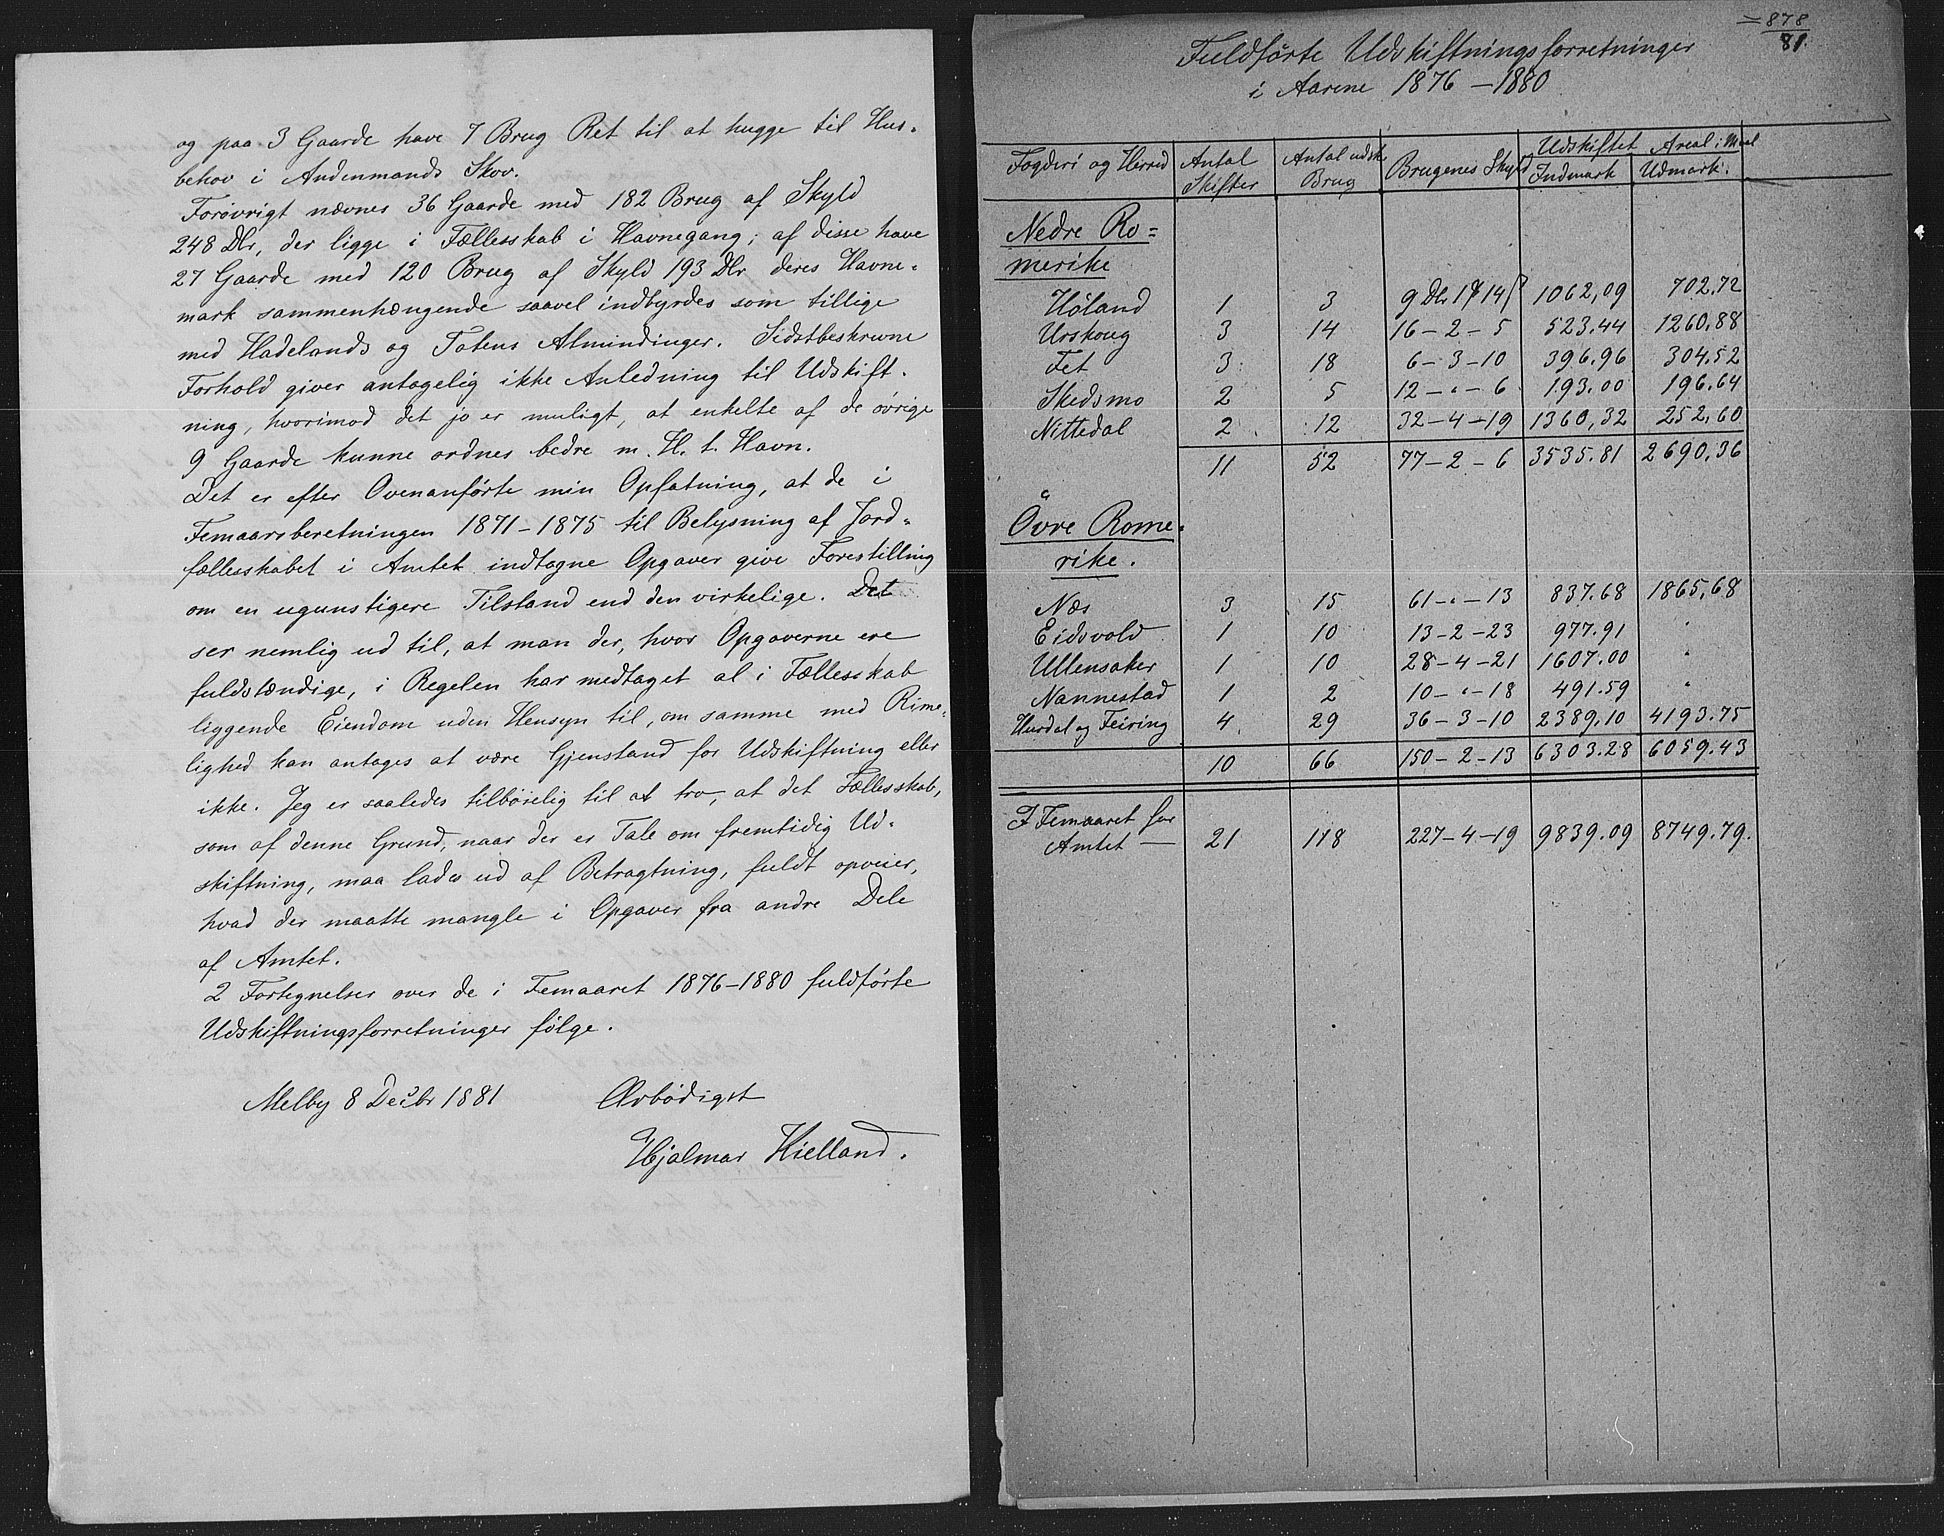 og paa 3 Gaarde have 7 Brug Ret til at hugge til Hus-
behov i Andenmands Skov.
Forøvrigt nævnes 36 Gaarde med 182 Brug af Skyld
248 Dlr, der ligge i Fællesskab i Havnegang; af disse have
27 Gaarde med 120 Brug af Skyld 193 Dlr deres Havne-
mark sammenhængende saavel indbyrdes som tillige
med Hadelands og Totens Almindinger. Sidstbeskrevne
Forhold giver antagelig ikke Anledning til Udskift-
ning, hvorimod det jo er muligt, at enkelte af de øvrige
9 Gaarde kunne ordnes bedre m. H. t. Havn.
Det er efter Ovenanførte min Opfatning, at de i
Femaarsberetningen 1871-1875 til Belysning af Jord-
fællesskabet i Amtet indtagne Opgaver give Forestilling
om en ugunstigere Tilstand end den virkelige. Det
ser nemlig ud til, at man der, hvor Opgaverne ere
fuldstændige, i Regelen har medtaget al i Fællesskab
liggende Eiendom uden Hensyn til, om samme med Rime-
lighed kan antages at være Gjenstand for Udskiftning eller
ikke. Jeg er saaledes tilbøielig til at tro, at det Fællesskab,
som af denne Grund, naar der er Tale om fremtidig Ud-
skiftning, maa lades ud af Betragtning, fuldt opveier,
hvad der maatte mangle i Opgaver fra andre Dele
af Amtet.
2 Fortegnelser over de i Femaaret 1876-1880 fuldførte
Udskiftningsforretninger følge.
Melby 8 Decbr 1881 Ærbødigst
Hjalmar Kielland.
878
81.
Fuldførte Udskiftningsforretninger
i Aarene 1876-1880
Fogderi og Herred Antal Skifter Antal udsk. Brug Brugenes Skyld Udskiftet Areal i Maal
Indmark Udmark.
Nedre Ro-
merike
Høland 1 3 9 Dlr 1 14 1062,09 702.72
Urskoug 3 14 16-2-5 523.44 1260.88
Fet 3 18 6-3-10 396.96 304.52
Skedsmo 2 5 12-"-6 193.00 196.64
Nittedal 2 12 32-4-19 1360,32 252,60
11 52 77-2-6 3535.81 2690,36
Övre Rome-
rike.
Næs 3 15 61-"-13 837.68 1865,68
Eidsvold 1 10 13-2-23 977.91 "
Ullensaker 1 10 28-4-21 1607.00 "
Nannestad 1 2 10-"-18 491.59 "
Hurdal og Feiring 4 29 36-3-10 2389,10 4193.75
10 66 150-2-13 6303.28 6059.43
I Femaaret for
Amtet — 21 118 227-4-19 9839.09 8749.79.